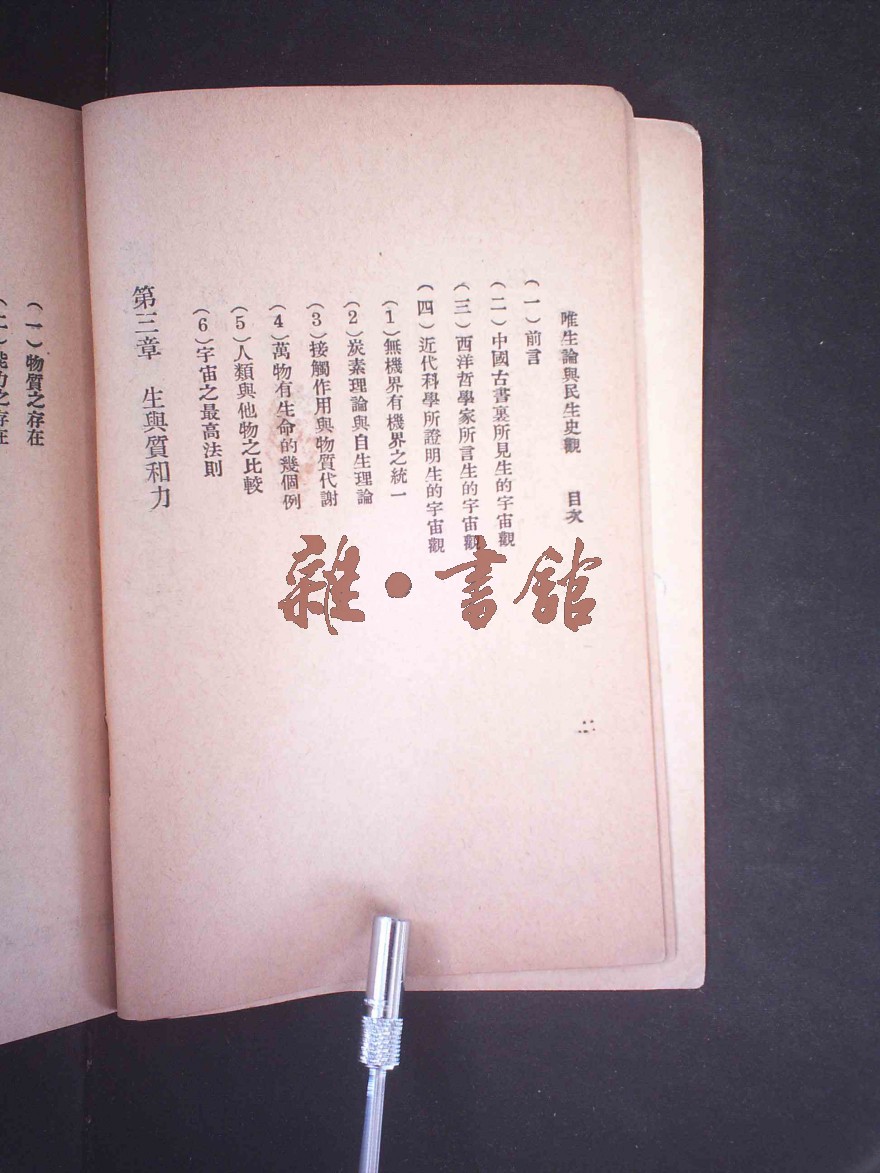 唯生論與民生史觀 目次
二
(一)前言
(二)中國古書裏所見生的宇宙觀
(三)西洋哲學家所言生的宇宙觀
(四)近代科學所證明生的宇宙觀
(1)無機界有機界之統一
(2)炭素理論與自生理論
(3)接觸作用與物質代謝
(4)萬物有生命的幾個例
(5)人類與他物之比較
(6)宇宙之最高法則
第三章 生與質和力
(一)物質之存在
(二)能力之存在
雜·書館